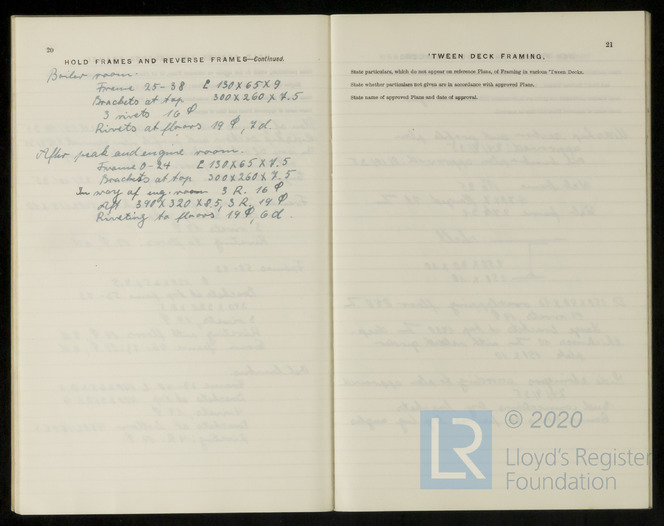 20
HOLD FRAMES AND REVERSE FRAMES—Continued.
Boiler room.
Frame 25-38 [ 130X65X9
Brackets at top 300X260X7.5
3 rivets 16 φ
Rivets at floors 19 φ, 7d.
After peak and engine room.
Frame 0-24 [ 130X65X7.5
Brackets at top 300X260X7.5
In way of eng. room 3 R. 16 φ
Aft 390X320X8.5, 3 R, 19 φ
Riveting to floors 19 φ, 6d.
21
'TWEEN DECK FRAMING.
State particulars, which do not appear on reference Plans, of Framing in various 'Tween Decks.
State whether particulars not given are in accordance with approved Plans.
State name of approved Plans and date of approval.
LR © 2020
Lloyd's Register
Foundation